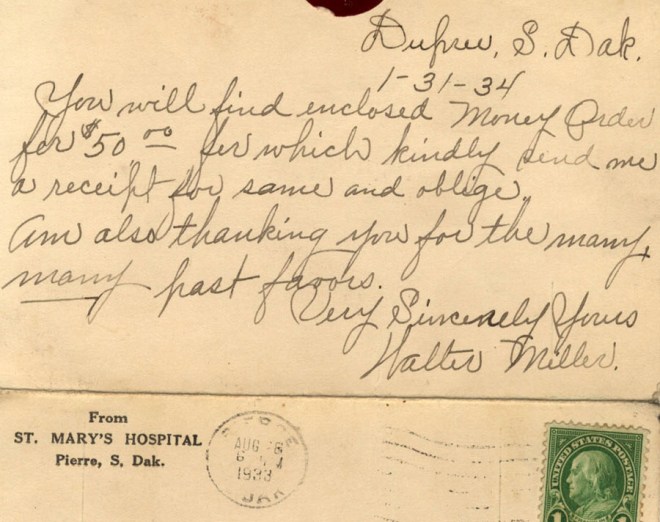 Dupree, S. Dak.
1-31-34
You will find enclosed Money Order
for $50.00 for which kindly send me
a receipt for same and oblige.
Am also thanking you for the many,
many past favors.
Very Sincerely Yours
Walter Miller.
From
ST. MARY'S HOSPITAL
Pierre, S. Dak.
PIERRE
AUG
1933
DAK
UNITED STATES POSTAGE